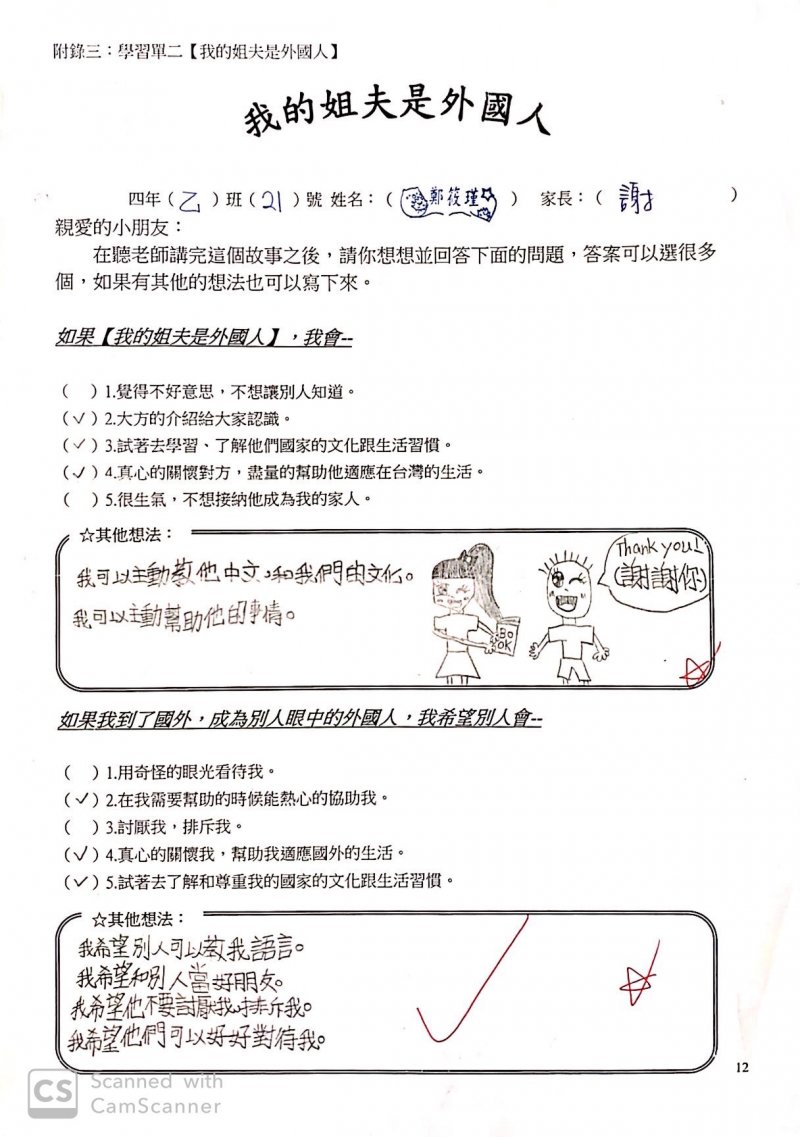 附錄三：學習單二【我的姐夫是外國人】
我的姐夫是外國人
四年（乙）班（21）號 姓名：（鄭筱瑾） 家長：（謝）
親愛的小朋友：
在聽老師講完這個故事之後，請你想想並回答下面的問題，答案可以選很多
個，如果有其他的想法也可以寫下來。
如果【我的姐夫是外國人】，我會--
（ ）1.覺得不好意思，不想讓別人知道。
（✓）2.大方的介紹給大家認識。
（✓）3.試著去學習、了解他們國家的文化跟生活習慣。
（✓）4.真心的關懷對方，盡量的幫助他適應在台灣的生活。
（ ）5.很生氣，不想接納他成為我的家人。
☆其他想法：
我可以主動教他中文，和我們的文化。
我可以主動幫助他的事情。
BO
OK
Thank you!
(謝謝你)
如果我到了國外，成為別人眼中的外國人，我希望別人會--
（ ）1.用奇怪的眼光看待我。
（✓）2.在我需要幫助的時候能熱心的協助我。
（ ）3.討厭我，排斥我。
（✓）4.真心的關懷我，幫助我適應國外的生活。
（✓）5.試著去了解和尊重我的國家的文化跟生活習慣。
☆其他想法：
我希望別人可以教我語言。
我希望和別人當好朋友。
我希望他不要討厭我，排斥我。
我希望他們可以好好對待我。
12
CS Scanned with
CamScanner